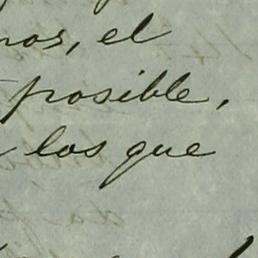 nos, el
posible,
los que